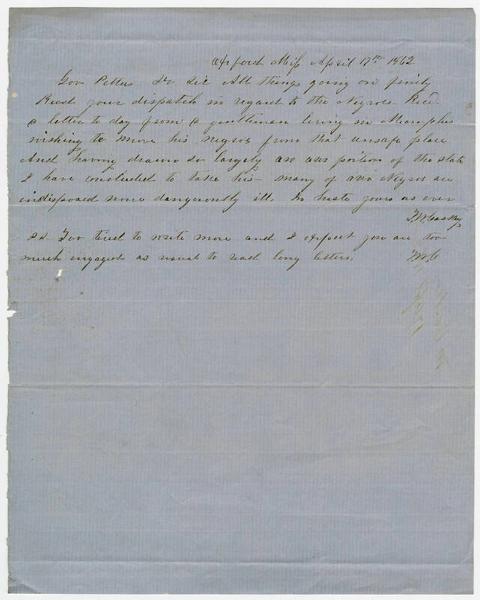 Oxford Miss April 17th 1862
Gov Pettus Dr Sir All things going on finely
Recd your dispatch in regard to the Negroes Recd
a letter to day from a gentleman living in Memphis
wishing to move his negros from that unsafe place
And having drawn so largely on our portion of the state
I have concluded to take his – many of our Negros are
indisposed none dangerously ill. In haste yours as ever
P.S. Too tired to write more and I expect you are too
much engaged as usual to read long letters.